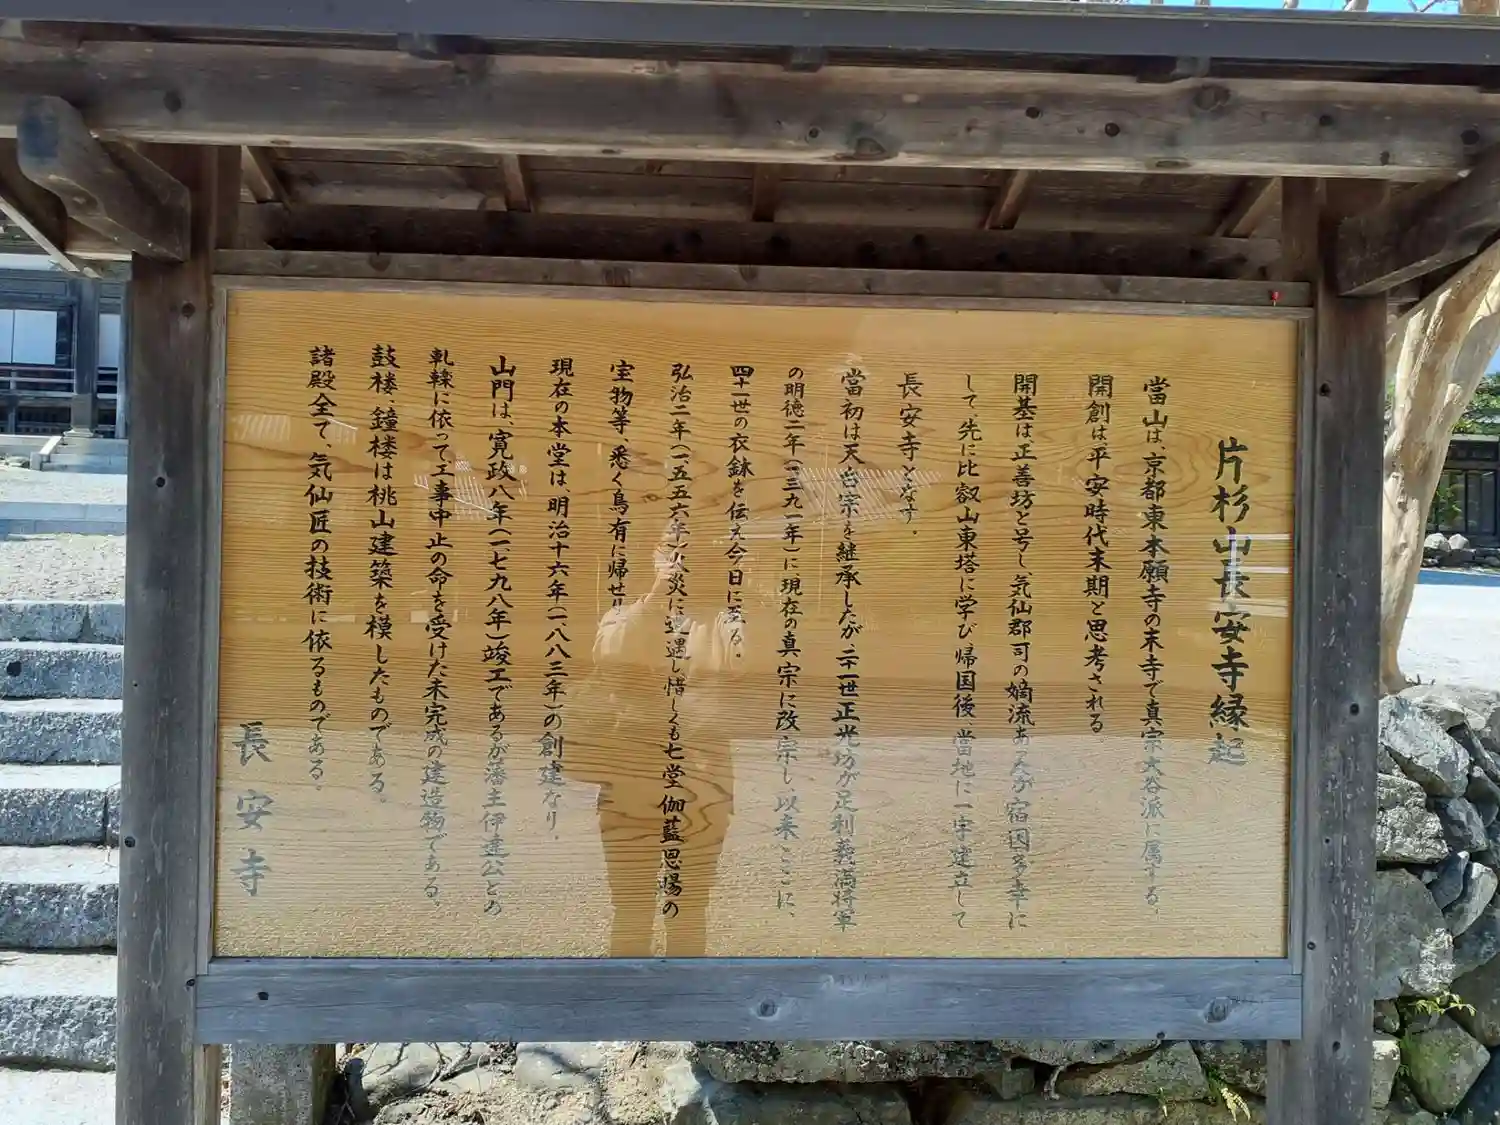 片杉山長安寺縁起
當山は、京都東本願寺の末寺で真宗大谷派に属する。
開創は平安時代末期と思考される
開基は正善坊と号し、気仙郡司の嫡流ある人が宿因多幸に
して、先に比叡山東塔に学び、帰国後、當地に一宇建立して
長安寺となす。
當初は天台宗を継承したが、二十一世正光坊が足利義満将軍
の明徳二年(一三九一年)に現在の真宗に改宗し、以来ここに、
四十一世の衣鉢を伝え今日に至る。
弘治二年(一五五六年)火災に遭遇し惜しくも七堂伽藍恩賜の
宝物等、悉く烏有に帰せり
現在の本堂は、明治十六年(一、八八三年)の創建なり。
山門は、寛政八年(一、七九八年)竣工であるが藩主伊達公との
軋轢に依って工事中止の命を受けた未完成の建造物である。
鼓楼、鐘楼は桃山建築を模したものである。
諸殿全て、気仙匠の技術に依るものである。
長安寺